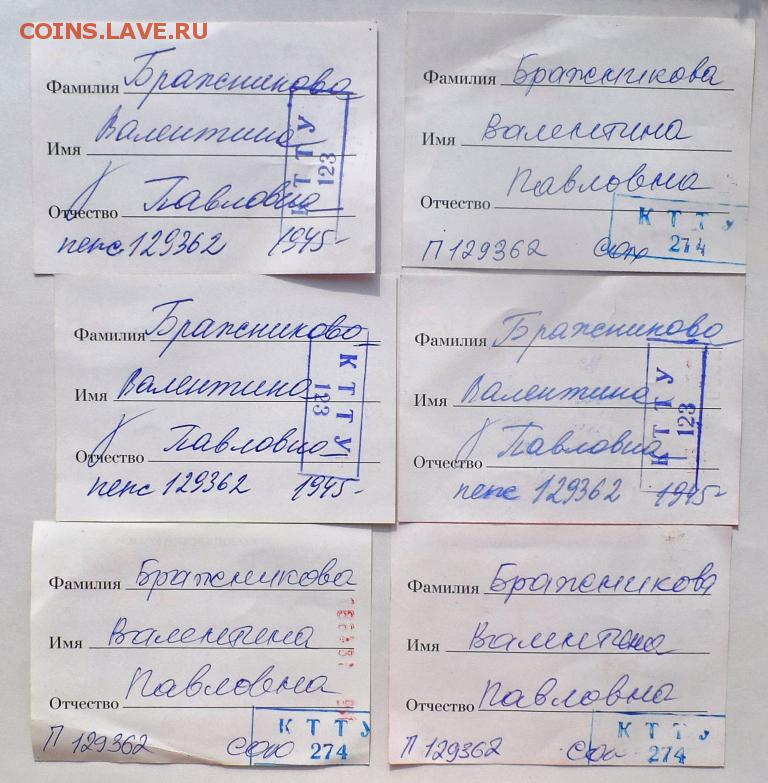 COINS.LAVE.RU
Фамилия Бражникова
Имя Валентина
Отчество Павловна
КТТУ
123
пенс 129362 1945-
Фамилия Бражникова
Имя Валентина
Отчество Павловна
КТТУ
274
П 129362
Фамилия Бражникова
Имя Валентина
Отчество Павловна
КТТУ
123
пенс 129362 1945-
Фамилия Бражникова
Имя Валентина
Отчество Павловна
КТТУ
123
пенс 129362 1945-
Фамилия Бражникова
Имя Валентина
Отчество Павловна
КТТУ
П 129362 274
Фамилия Бражникова
Имя Валентина
Отчество Павловна
КТТУ
П 129362 274